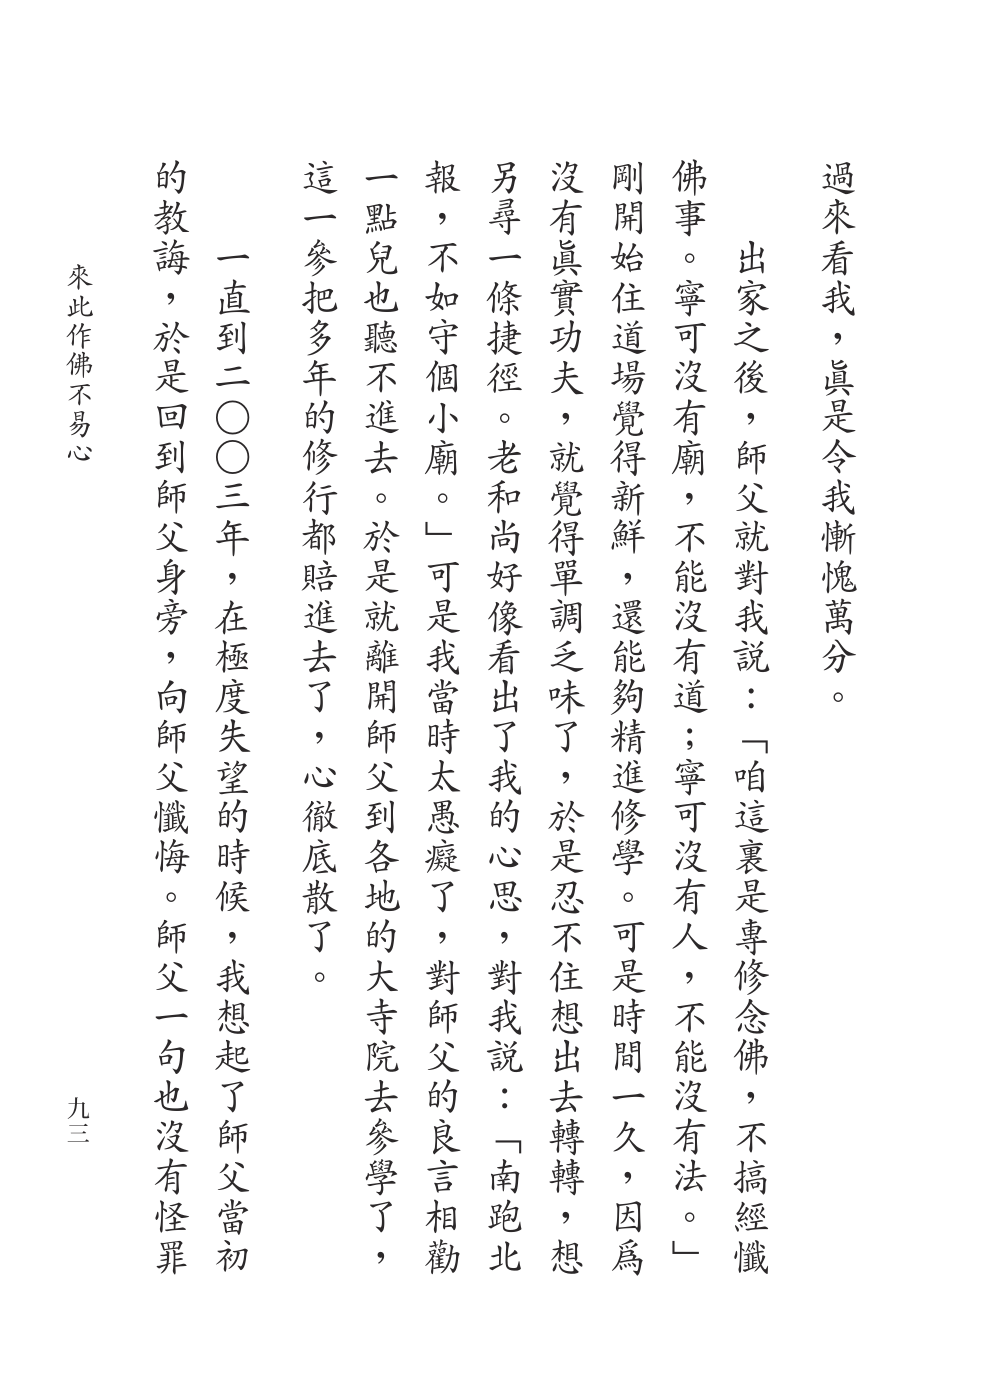 過來看我，眞是令我慚愧萬分。
出家之後，師父就對我説：「咱這裏是專修念佛，不搞經懺
佛事。寧可沒有廟，不能沒有道；寧可沒有人，不能沒有法。」
剛開始住道場覺得新鮮，還能夠精進修學。可是時間一久，因爲
沒有眞實功夫，就覺得單調乏味了，於是忍不住想出去轉轉，想
另尋一條捷徑。老和尚好像看出了我的心思，對我説：「南跑北
報，不如守個小廟。」可是我當時太愚癡了，對師父的良言相勸
一點兒也聽不進去。於是就離開師父到各地的大寺院去參學了，
這一參把多年的修行都賠進去了，心徹底散了。
一直到二〇〇三年，在極度失望的時候，我想起了師父當初
的教誨，於是回到師父身旁，向師父懺悔。師父一句也沒有怪罪
來此作佛不易心
九三